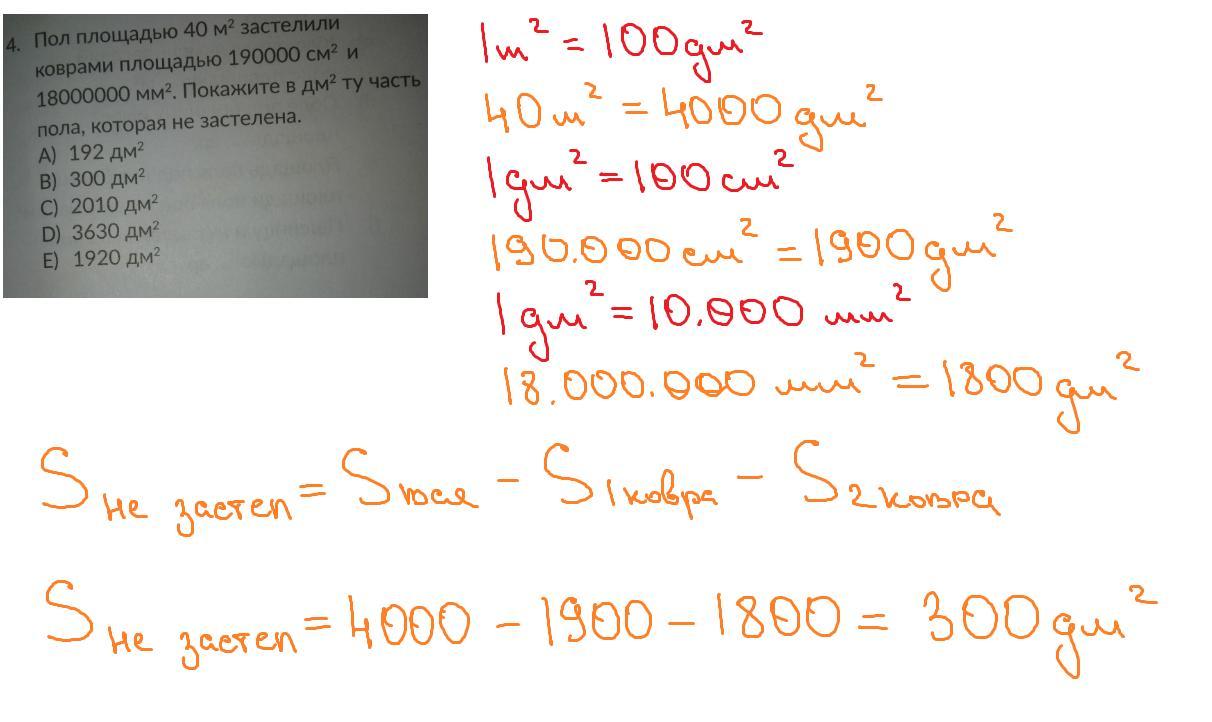 4. Пол площадью 40 м² застелили
коврами площадью 190000 см² и
18000000 мм². Покажите в дм² ту часть
пола, которая не застелена.
A) 192 дм²
B) 300 дм²
C) 2010 дм²
D) 3630 дм²
E) 1920 дм²
1m² = 100 дм²
40 м² = 4000 дм²
1 дм² = 100 см²
190.000 см² = 1900 дм²
1 дм² = 10.000 мм²
18.000.000 мм² = 1800 дм²
S не застел = S пола - S 1 ковра - S 2 ковра
S не застел = 4000 - 1900 - 1800 = 300 дм²